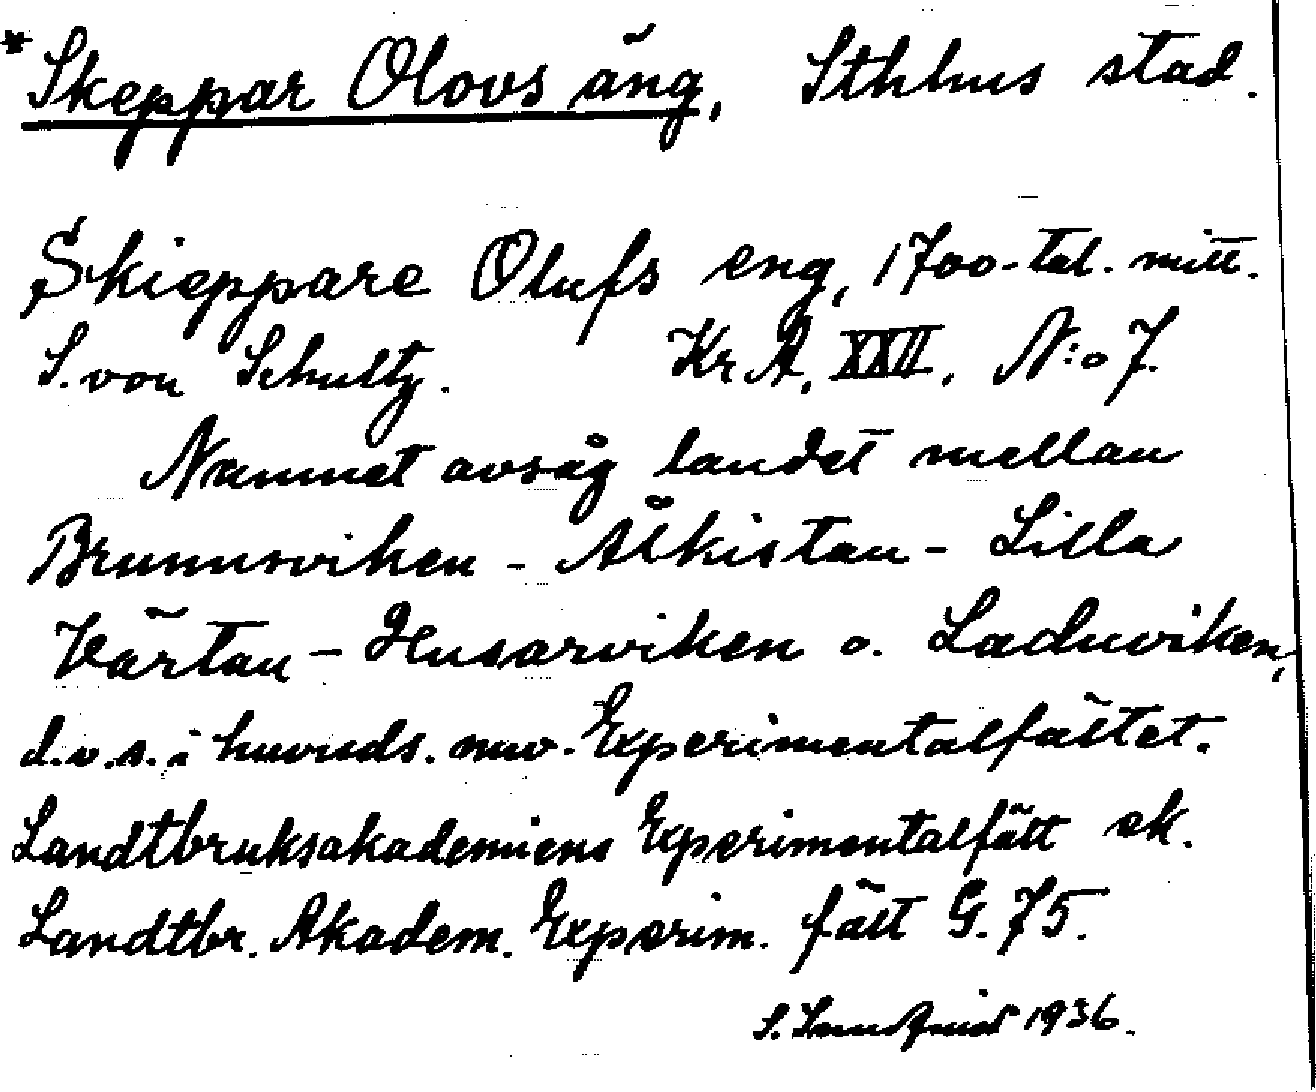 * Skeppar Olovs äng, Sthlms stad.
Skieppare Olufs eng, 1700-tal. mitt.
S. von Schultz. Kr A, XXII, N:o 7.
Namnet avsåg landet mellan
Brunnsviken - Ålkistan - Lilla
Värtan - Husarviken o. Laduviken,
d.v.s. i huvuds. nuv. Experimentalfältet.
Landtbruksakademiens Experimentalfält ek.
Landtbr. Akadem. Experim. fält G. 75.
S. 1936.